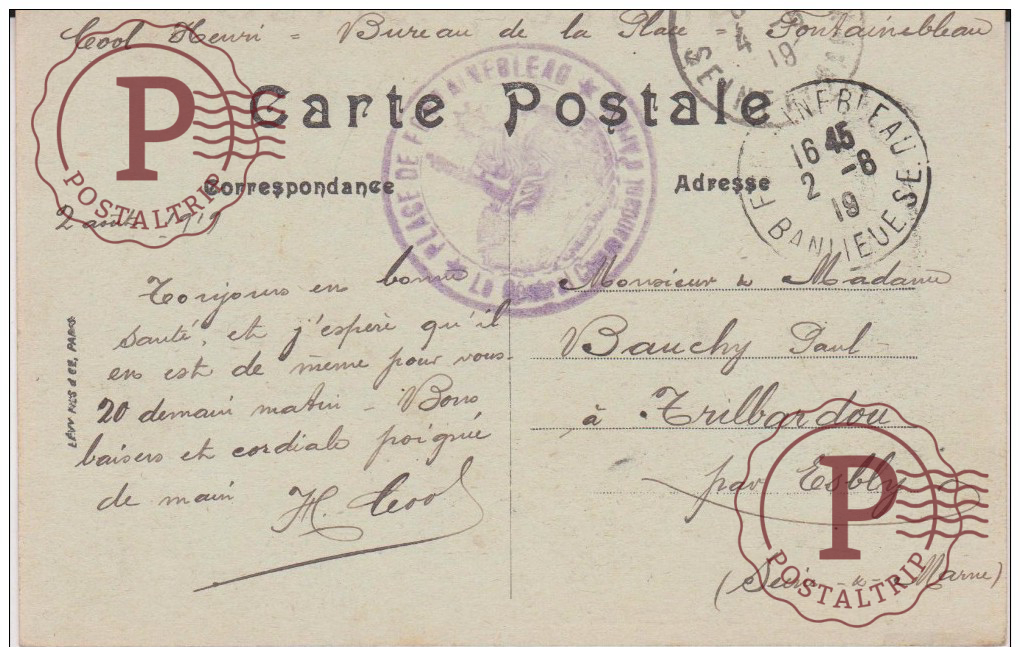 Cool Henri = Bureau de la Place = Fontainebleau
Carte Postale
Correspondance
Adresse
2 août 1919
Toujours en bonne
santé, et j'espère qu'il
en est de même pour vous.
20 demain matin - Bons
baisers et cordiale poignée
de main
H. Cool
Monsieur & Madame
Bauchy Paul
à Trilbardou
par Esbly
(Seine-&-Marne)
LÉVY FILS & CIE, PARIS
PLACE DE FONTAINEBLEAU
4
19
SEINE
FONTAINEBLEAU
16 45
2 -8
19
BANLIEUE SE
P
POSTALTRIP
P
POSTALTRIP